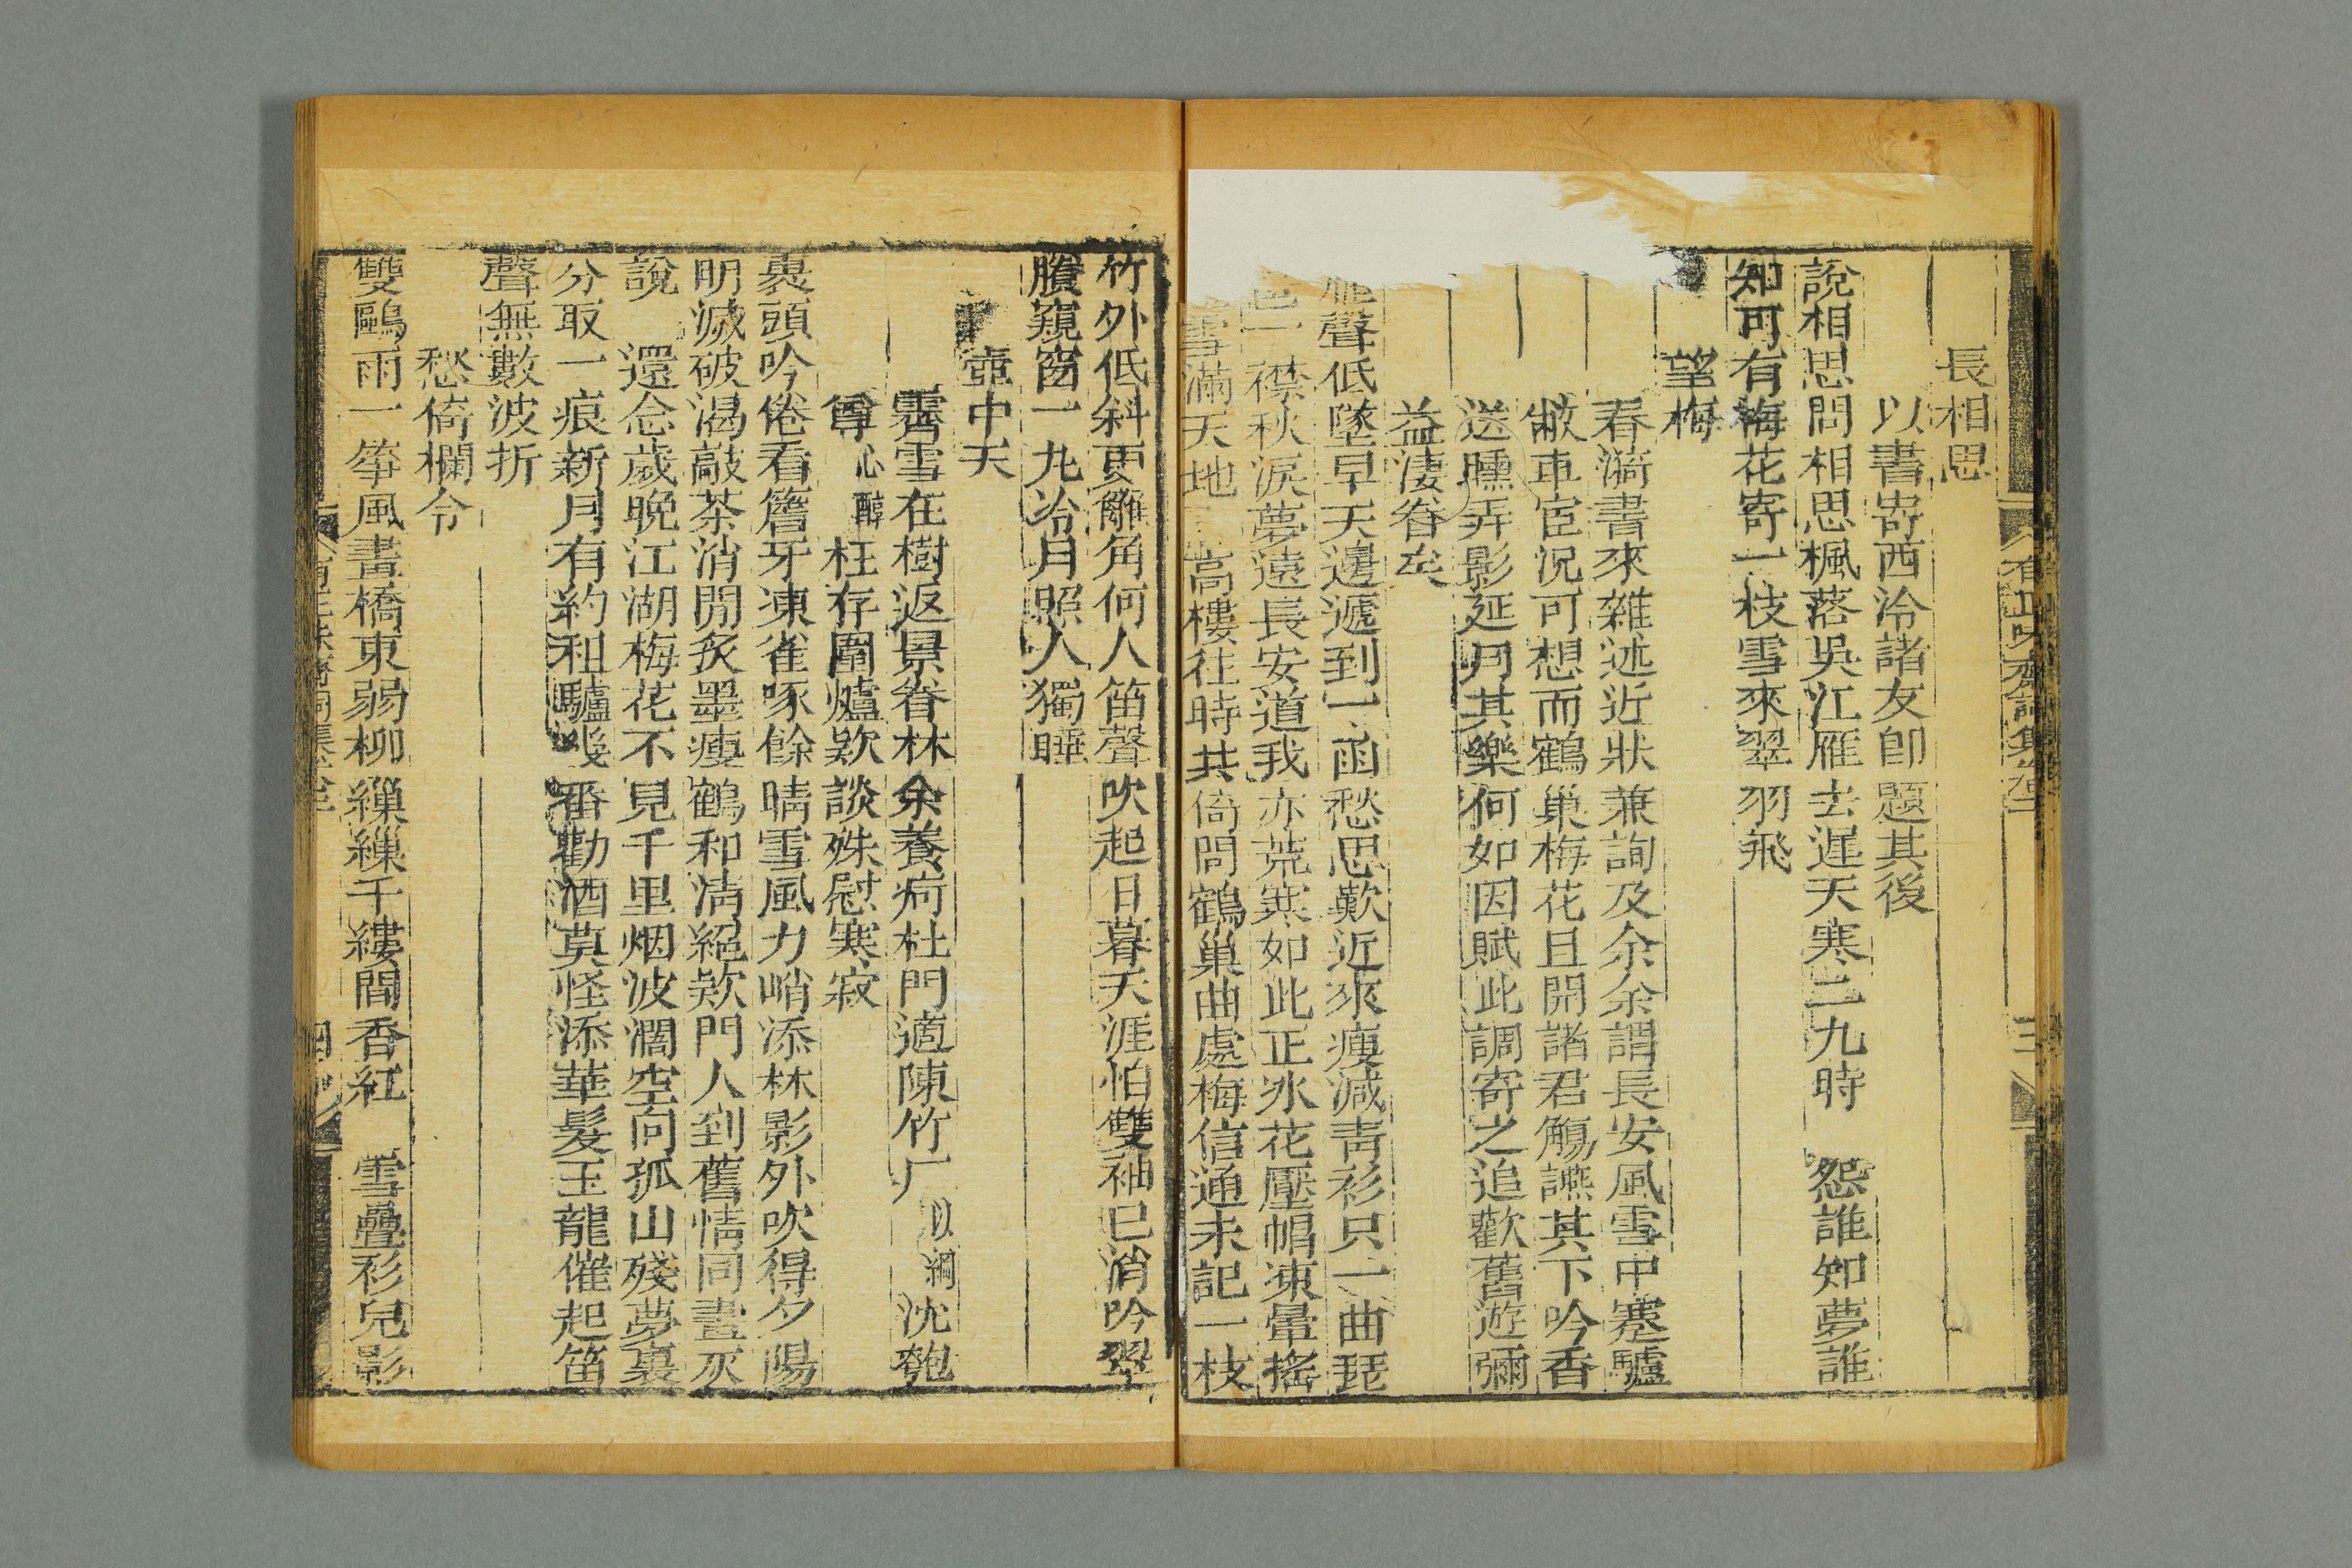 長相思
以書寄西泠諸友卽題其後
說相思問相思楓落吳江雁去遲天寒二九時 怨誰知夢誰
知可有梅花寄一枝雪來翠羽飛
望梅
春漪書來雜述近狀兼詢及余余謂長安風雪中蹇驢
敝車宦況可想而鶴巢梅花且開諸君觴讌其下吟香
送臐弄影延月其樂何如因賦此調寄之追歡舊遊彌
益淒眷矣
聲低墜早天邊遞到一函愁思歎近來瘦減靑衫只一曲琵
一襟秋淚夢遠長安道我亦荒寒如此正氷花壓帽凍暈搖
雪滿天地 高樓往時共倚問鶴巢曲處梅信通未記一枝
竹外低斜更籬角何人笛聲吹起日暮天涯怕雙袖已消吟翠
賸窺窗一丸冷月照人獨睡
壺中天
霽雪在樹返景眷林余養疴杜門適陳竹厂以綱沈匏
尊心醇枉存圍爐欵談殊慰寒寂
裹頭吟倦看簷牙凍雀啄餘晴雪風力峭添林影外吹得夕陽
明滅破渴敲茶消閒炙墨瘦鶴和淸絕欵門人到舊情同畫灰
說 還念歲晚江湖梅花不見千里烟波濶空向孤山殘夢裏
分取一痕新月有約租驢幾番勸酒莫怪添華髮玉龍催起笛
聲無數波折
愁倚欄令
雙鷗雨一箏風畫橋東弱柳纙纙千縷間香紅 雪疊衫兒影